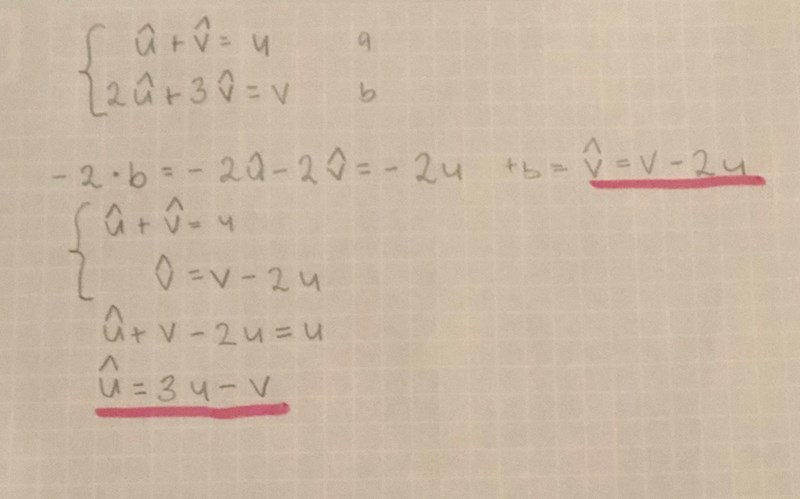 û + v̂ = u a
2û + 3v̂ = v b
-2 · b = -2û - 2v̂ = -2u +b = v̂ = v - 2u
û + v̂ = u
v̂ = v - 2u
û + v - 2u = u
û = 3u - v